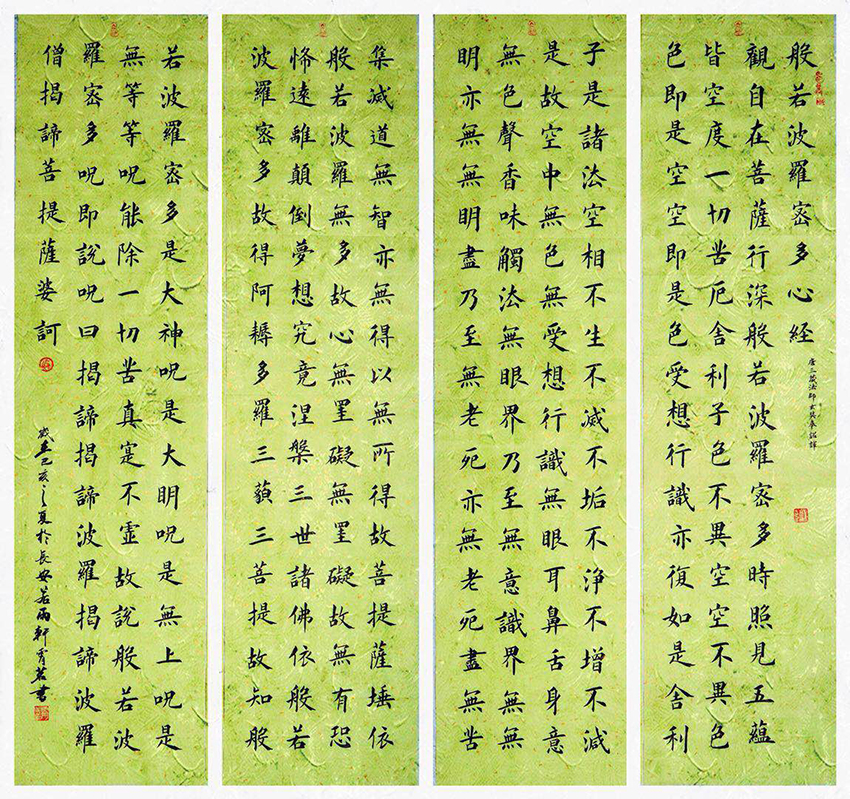 般若波羅密多心経
唐三藏法師玄奘奉詔譯
觀自在菩薩行深般若波羅密多時照見五蘊
皆空度一切苦厄舍利子色不異空空不異色
色即是空空即是色受想行識亦復如是舍利
子是諸法空相不生不滅不垢不淨不增不減
是故空中無色無受想行識無眼耳鼻舌身意
無色聲香味觸法無眼界乃至無意識界無無
明亦無無明盡乃至無老死亦無老死盡無苦
集滅道無智亦無得以無所得故菩提薩埵依
般若波羅無多故心無罣礙無罣礙故無有恐
怖遠離顛倒夢想究竟涅槃三世諸佛依般若
波羅密多故得阿耨多羅三藐三菩提故知般
若波羅密多是大神呪是大明呪是無上呪是
無等等呪能除一切苦真寔不虛故說般若波
羅密多呪即說呪曰揭諦揭諦波羅揭諦波羅
僧揭諦菩提薩婆訶
歲在己亥之夏於長安若雨軒霄若書